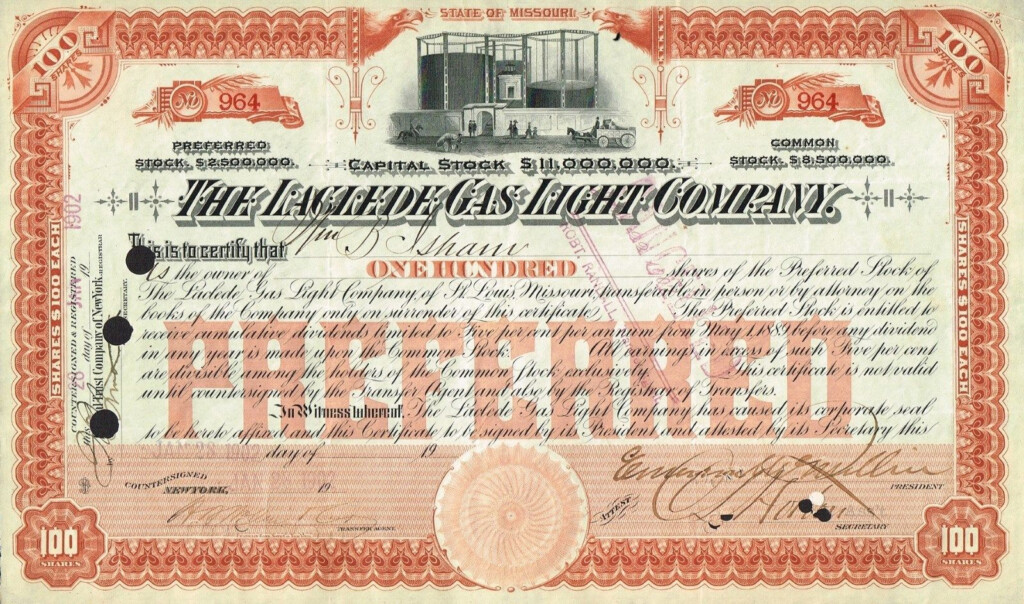 STATE OF MISSOURI
100 SHARES
100 SHARES
No 964
No 964
PREFERRED STOCK. $2,500,000.
CAPITAL STOCK $11,000,000.
COMMON STOCK. $8,500,000.
THE LACLEDE GAS LIGHT COMPANY.
This is to certify that Wm B Isham
is the owner of ONE HUNDRED shares of the Preferred Stock of
The Laclede Gas Light Company, of St. Louis, Missouri, transferable in person or by attorney on the
books of the Company only on surrender of this certificate. The Preferred Stock is entitled to
receive cumulative dividends limited to Five per cent per annum from May 1, 1889 before any dividend
in any year is made upon the Common Stock. All earnings in excess of such Five per cent
are divisible among the holders of the Common Stock exclusively. This certificate is not valid
until countersigned by the Transfer Agent and also by the Registrar of Transfers.
PREFERRED
In Witness whereof, The Laclede Gas Light Company has caused its corporate seal
to be hereto affixed and this Certificate to be signed by its President and attested by its Secretary this
day of 19
COUNTERSIGNED
NEW YORK, 19
TRANSFER AGENT.
Emerson McMillin
PRESIDENT
ATTEST
SECRETARY
SHARES $100 EACH
SHARES $100 EACH
COUNTERSIGNED & REGISTERED
day of 19
1902
Trust Company of New York
REGISTRAR
SECRETARY
100 SHARES
100 SHARES